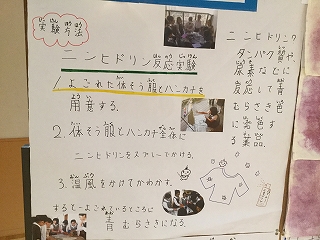 実験方法
ニンヒドリン反応実験
1.よごれた体そう服とハンカチを
用意する。
2.体そう服とハンカチ全体に
ニンヒドリンをスプレーでかける。
3.温風をかけてかわかす。
するとーよごれているところに
青むらさきになる。
ニンヒドリン？
タンパク質や、
尿素などに
反応して青
むらさき色
に発色す
る薬品。